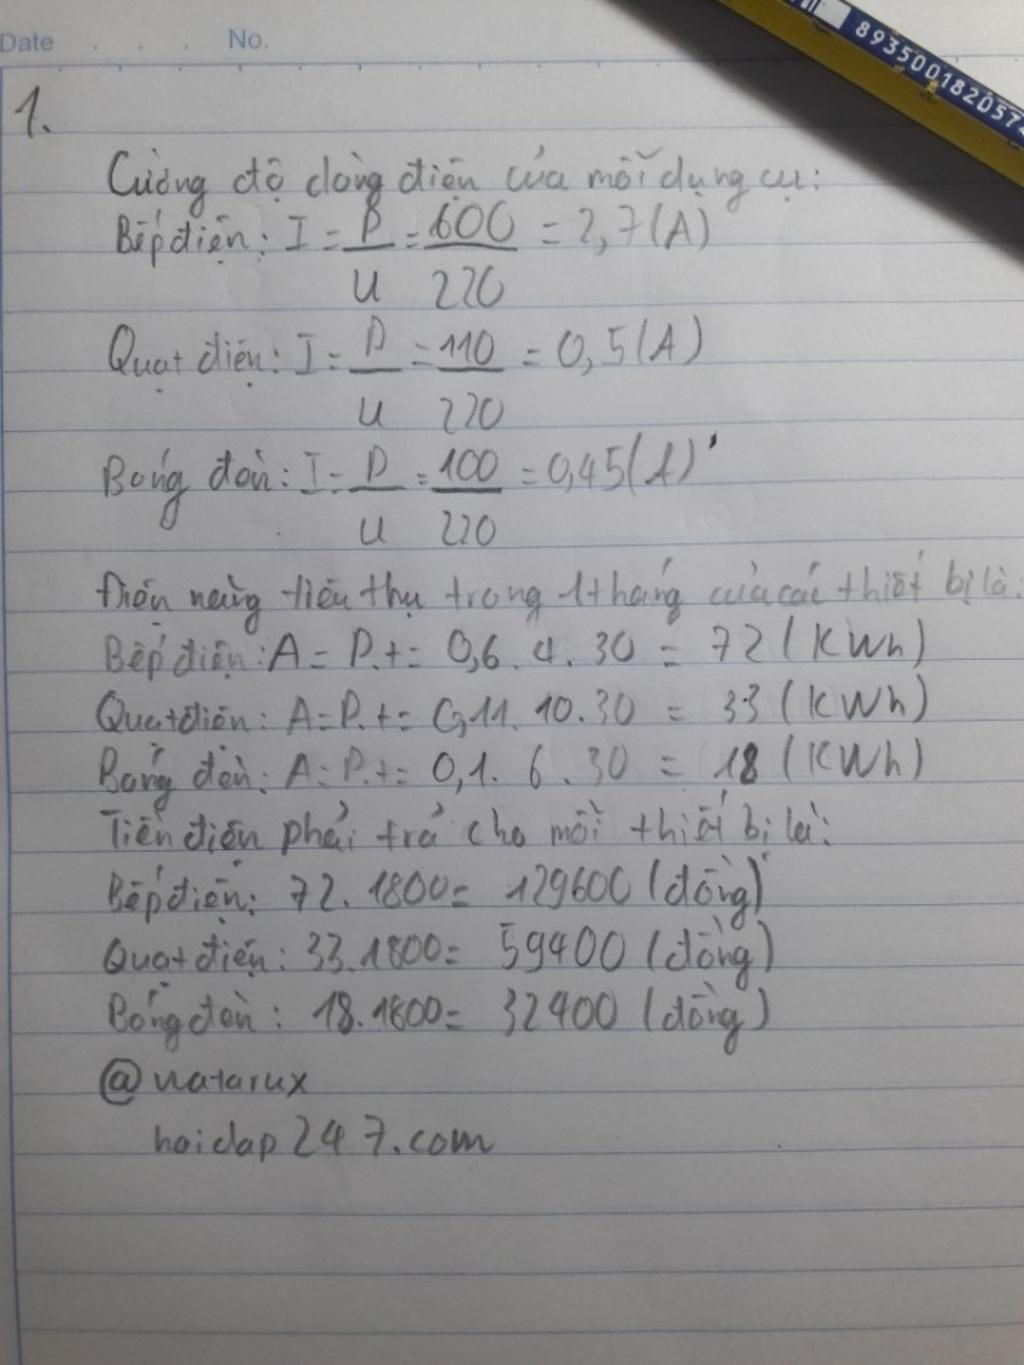 Date No.
8935001820574
1.
Cường độ dòng điện của mỗi dụng cụ:
Bếp điện: I = P/U = 600/220 = 2,7(A)
Quạt điện: I = P/U = 110/220 = 0,5(A)
Bóng đèn: I = P/U = 100/220 = 0,45(A)
Điện năng tiêu thụ trong 1 tháng của các thiết bị là:
Bếp điện: A = P.t = 0,6.4.30 = 72(KWh)
Quạt điện: A = P.t = 0,11.10.30 = 33(KWh)
Bóng đèn: A = P.t = 0,1.6.30 = 18(KWh)
Tiền điện phải trả cho mỗi thiết bị là:
Bếp điện: 72.1800 = 129600(đồng)
Quạt điện: 33.1800 = 59400(đồng)
Bóng đèn: 18.1800 = 32400(đồng)
@natarux
hoidap247.com